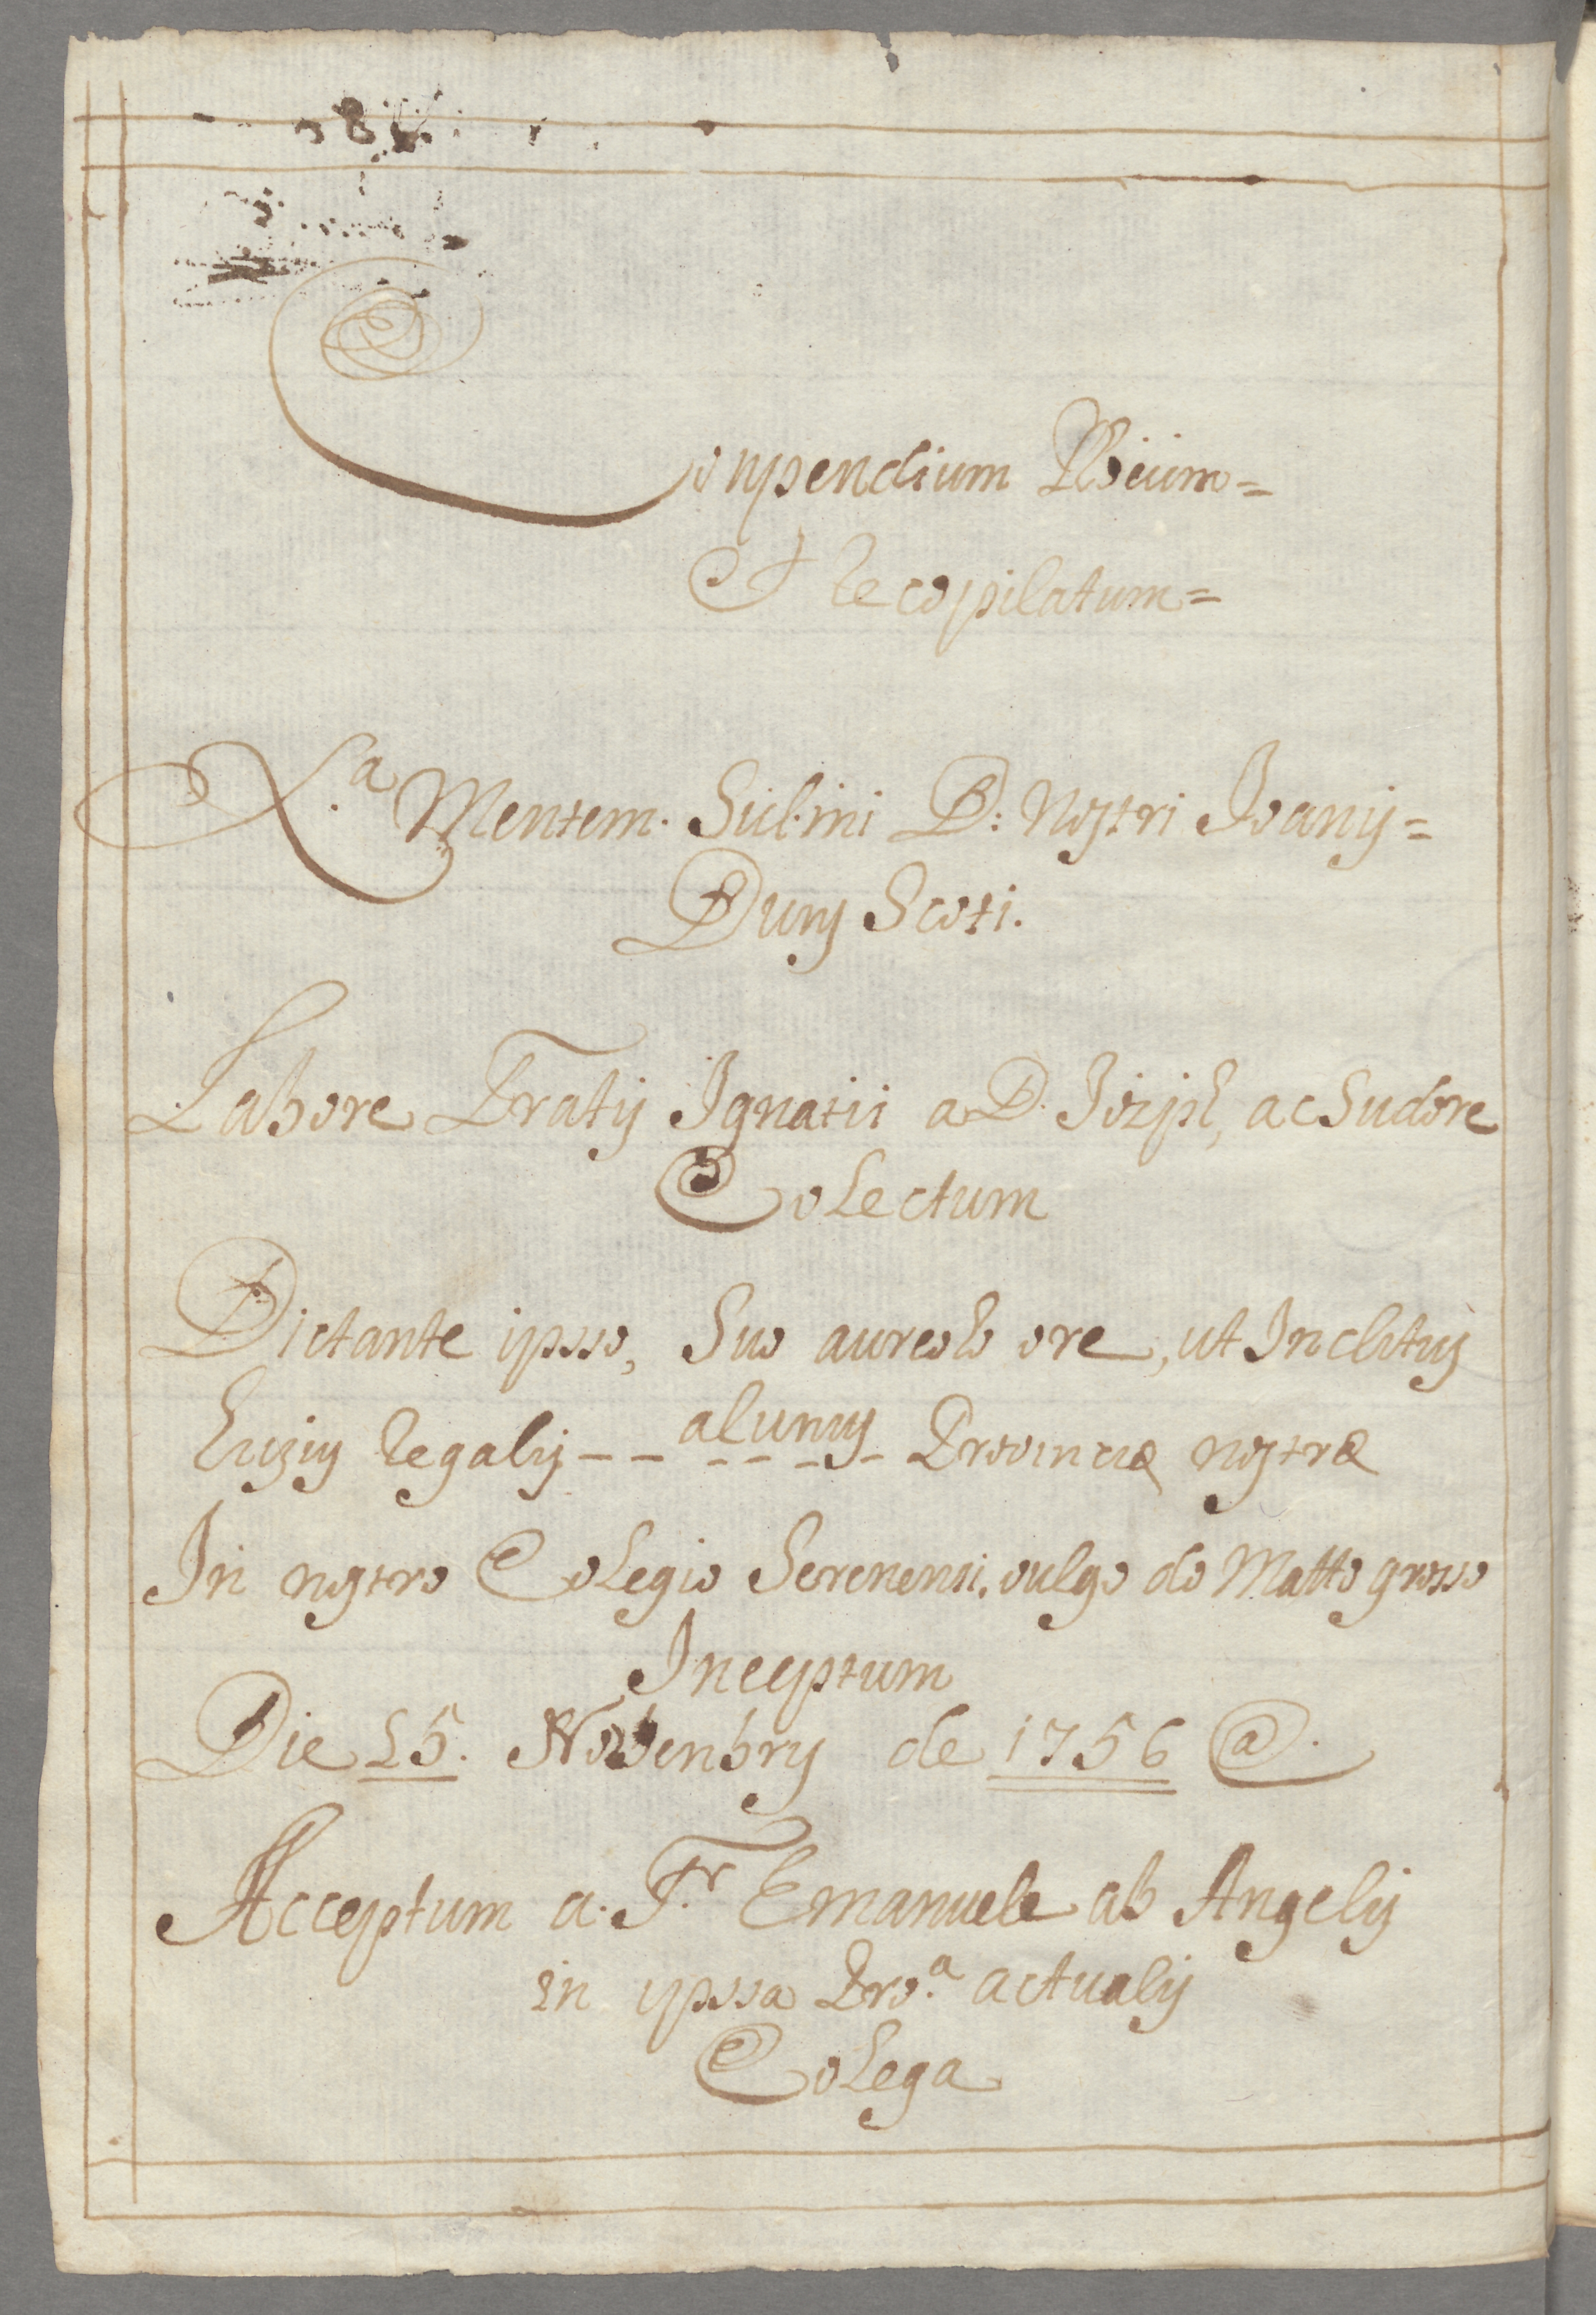 Conpendium
Et Recopilatum=
X.ª Mentem. Sul.mi D: Nostri Joanis=
Duns Scoti.
Labore Fratis Ignatii a D. Jozph, ac Sudore
Colectum
Dictante ipsso, Suo aureolo ore, ut Inclitus
Regalis -- alunus Provinciæ nostræ
In nostro Colegio Serenensi. vulgo do Matto grosso
Inceptum
Die 15. Novenbris de 1756 @.
Acceptum a. Fr Emanuele ab Angelis
in ipssa Pro.ª actualis
Colega